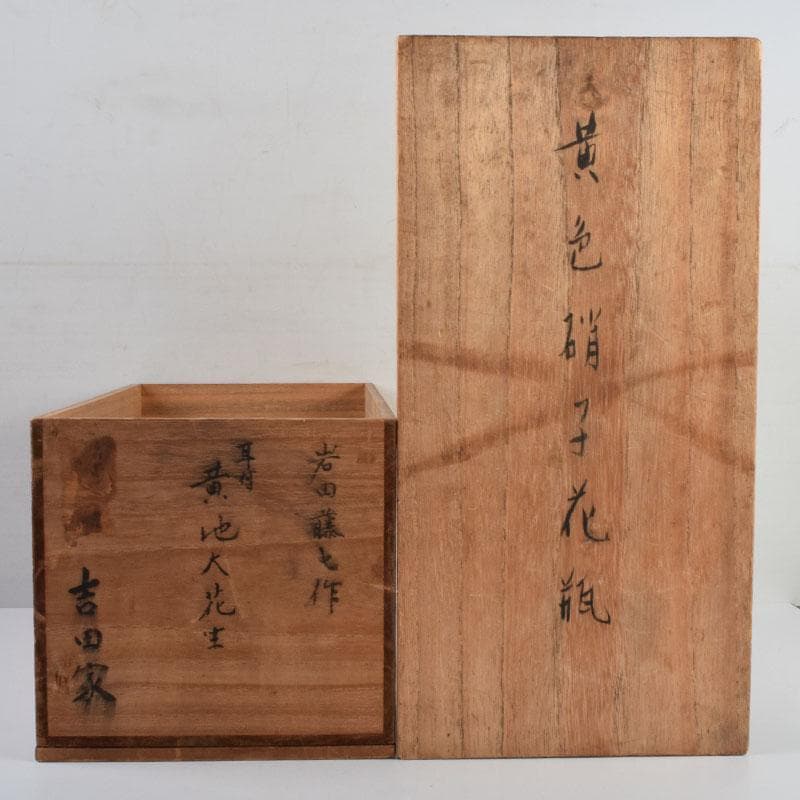 黄色硝子花瓶
岩田藤七作
耳付
黄地大花生
吉田家